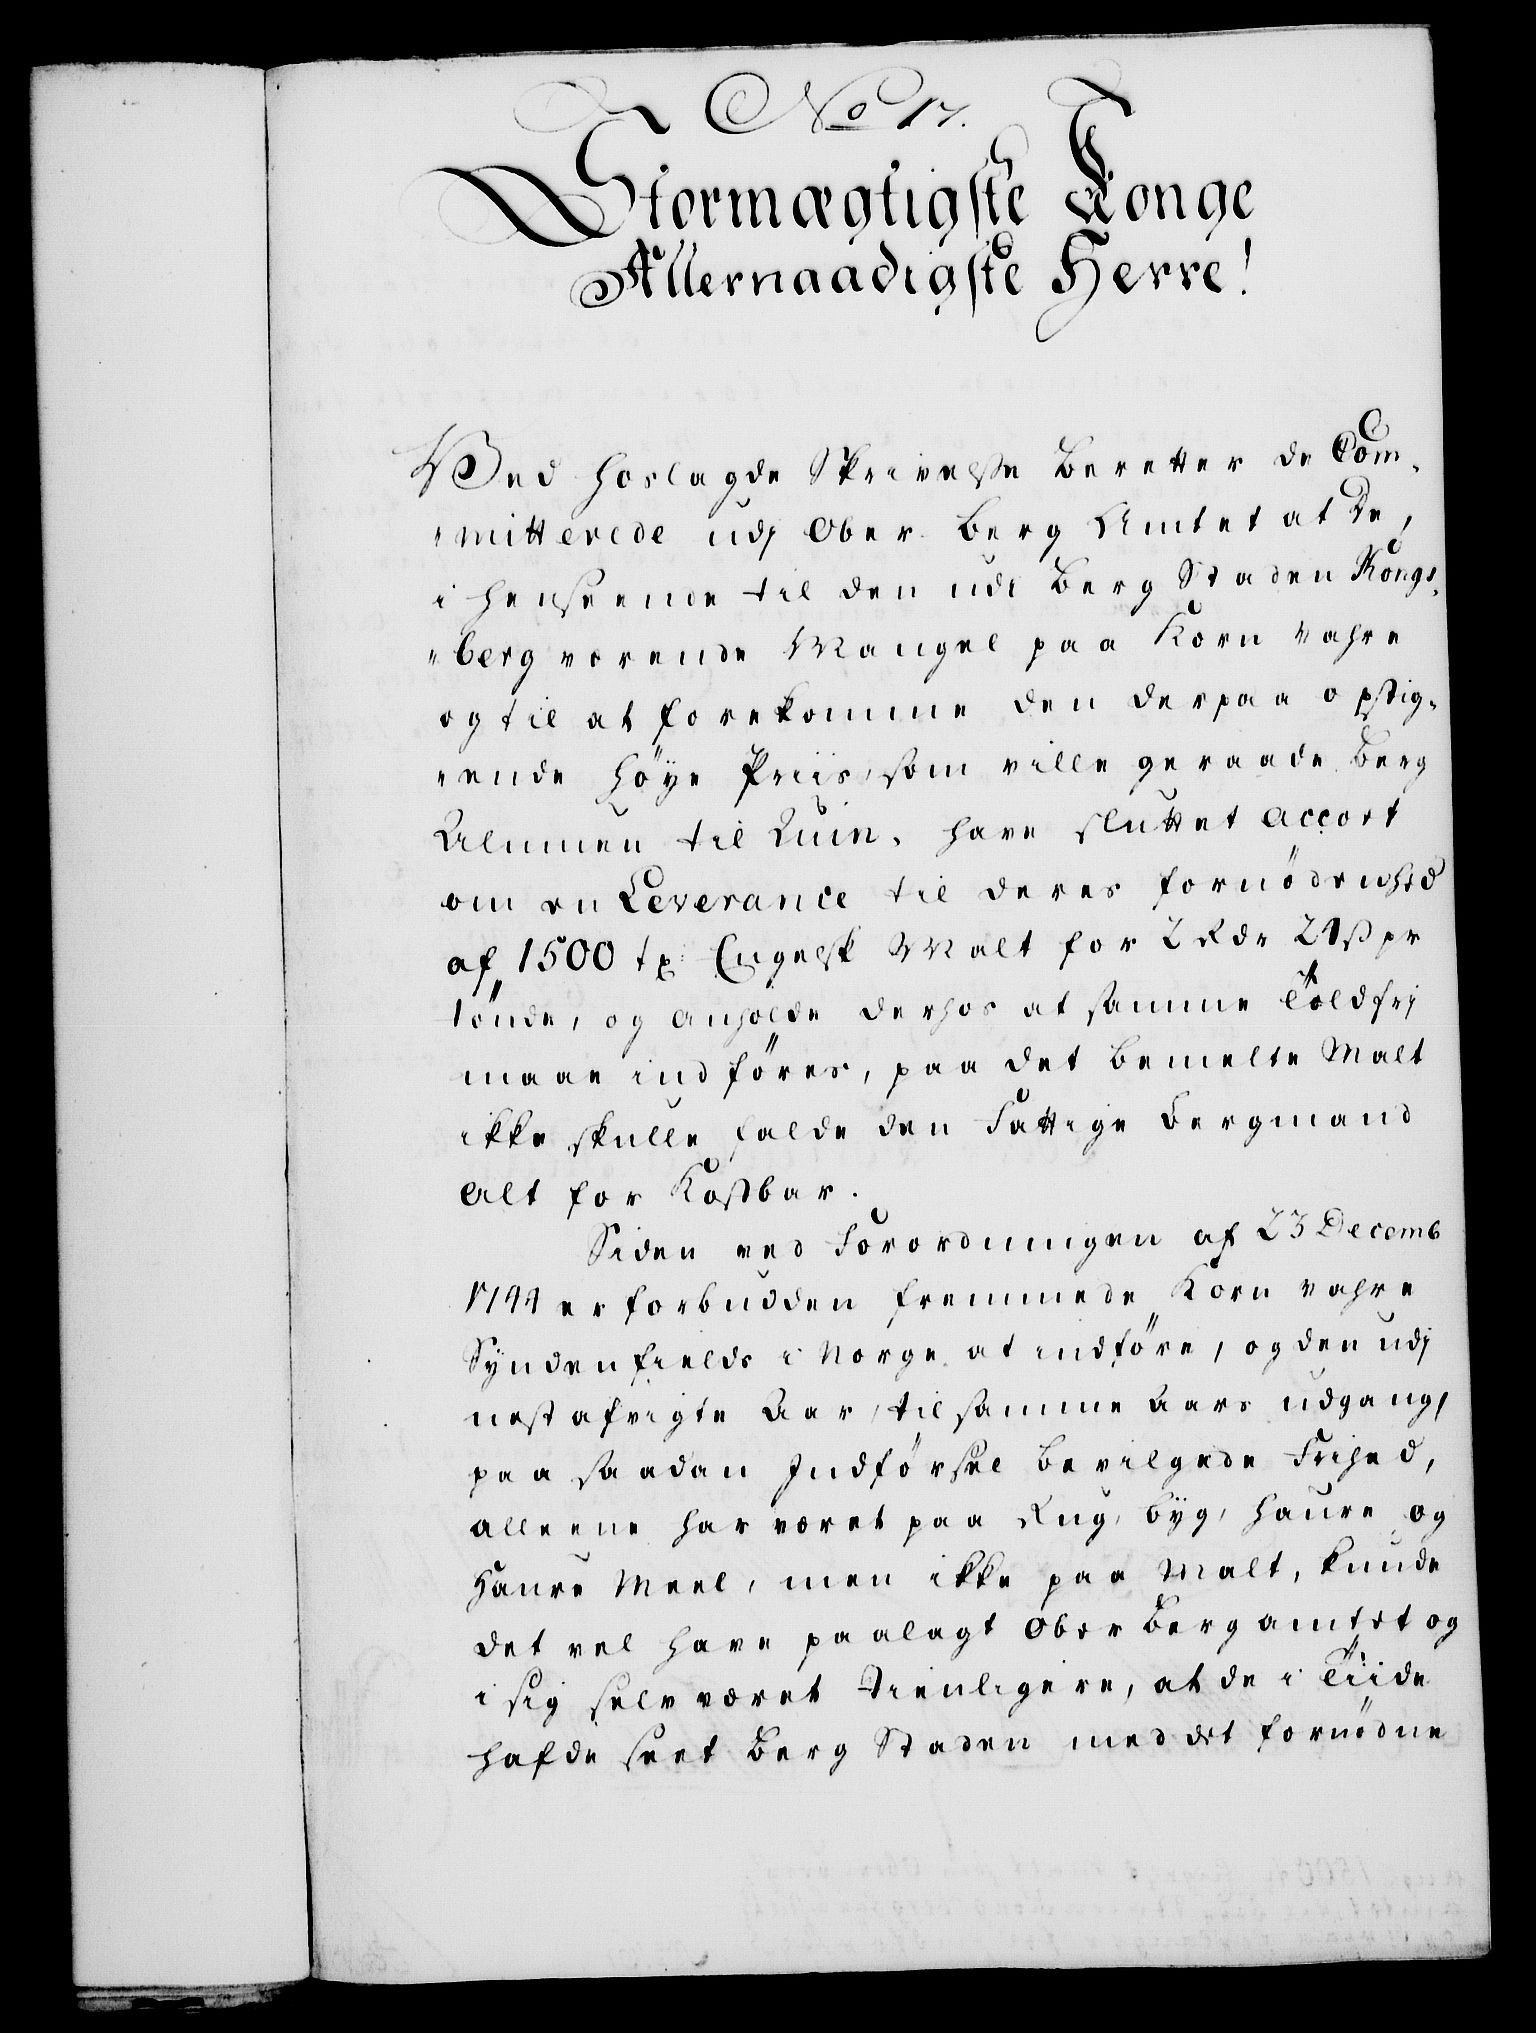 No 17.
Stormægtigste Konge
Allernaadigste Herre!
Ved hoslagde Skrivelse beretter de Com-
"mitterede udj Ober Berg Amtet at De,
i henseende til den udi Berg Staden Kongs-
"berg værende Mangel paa Korn Vahre
og til at forekomme den derpaa opstig-
"ende høye Priis, som ville geraade Berg
Almuen til Ruin, have sluttet accort
om en Leverance til deres fornødenhed
af 1500 tr: Engelsk Malt for 2 Rdr 24 ß pr
tønde, og anholde derhos at samme Toldfri
maae indføres, paa det bemelte Malt
ikke skulle falde den Fattige Bergmand
alt for Kostbar.
Siden ved Forordningen af 23 Decemb
1744 er forbudden fremmede Korn Vahre
Syndenfields i Norge at indføre, og den udj
nest afvigte Aar, til samme Aars udgang,
paa saadan Indførsel bevilgede Frihed,
alleene har været paa Rug, byg, haure og
Haure Meel, men ikke paa Malt, kunde
det vel have paalagt Ober Bergamtet og
i sig selv været tienligere, at de i Tiide
hafde seet Berg Staden med det fornødne